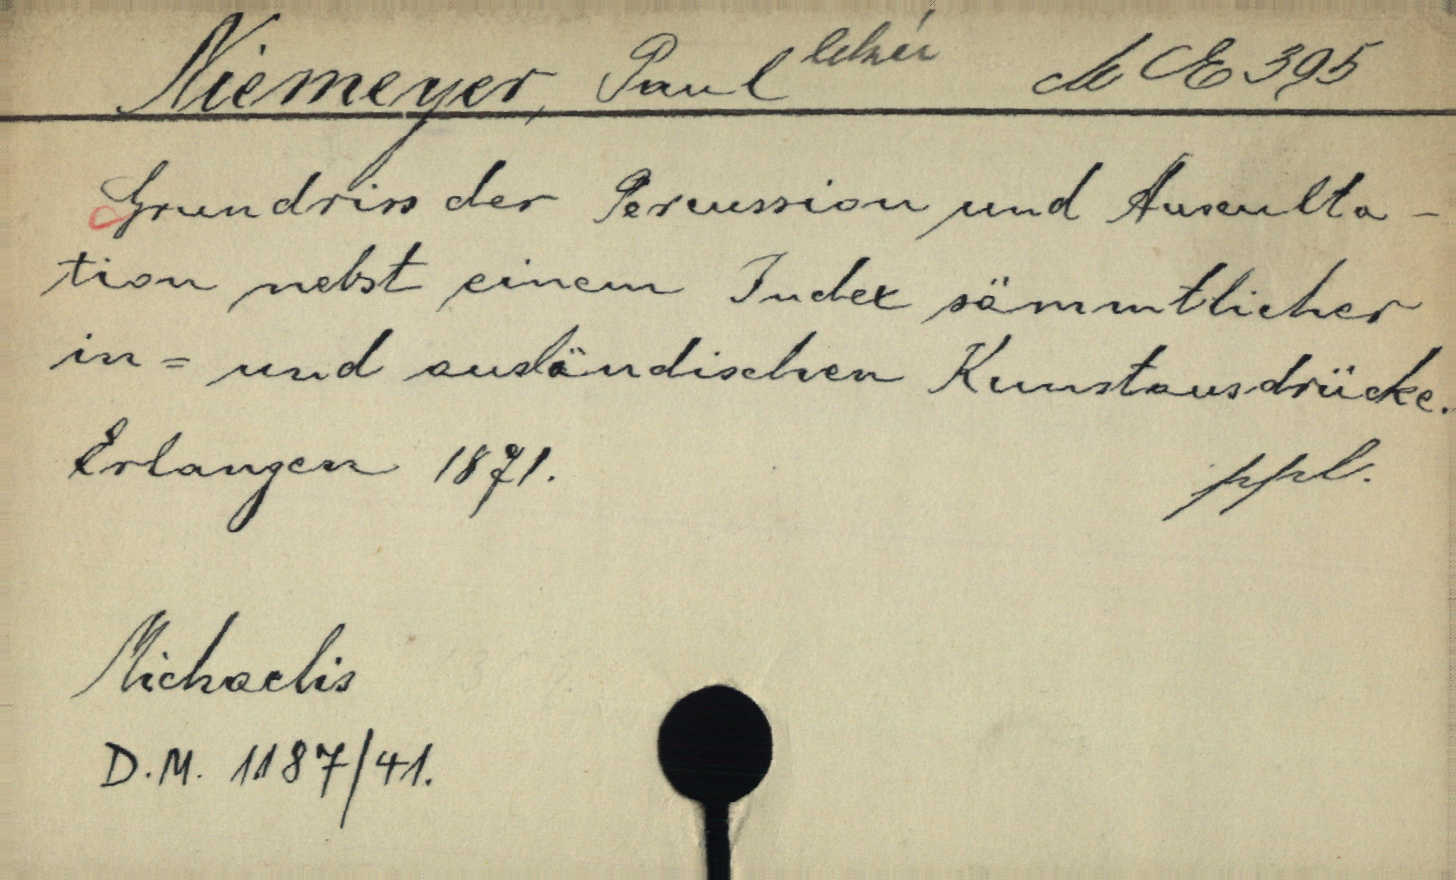 Niemeyer, Paul lékař M E 395
Grundriss der Percussion und Ausculta-
tion nebst einem Index sämmtlicher
in= und ausländischen Kunstausdrücke.
Erlangen 1871. ppl.
Michaelis
D.M. 1187/41.